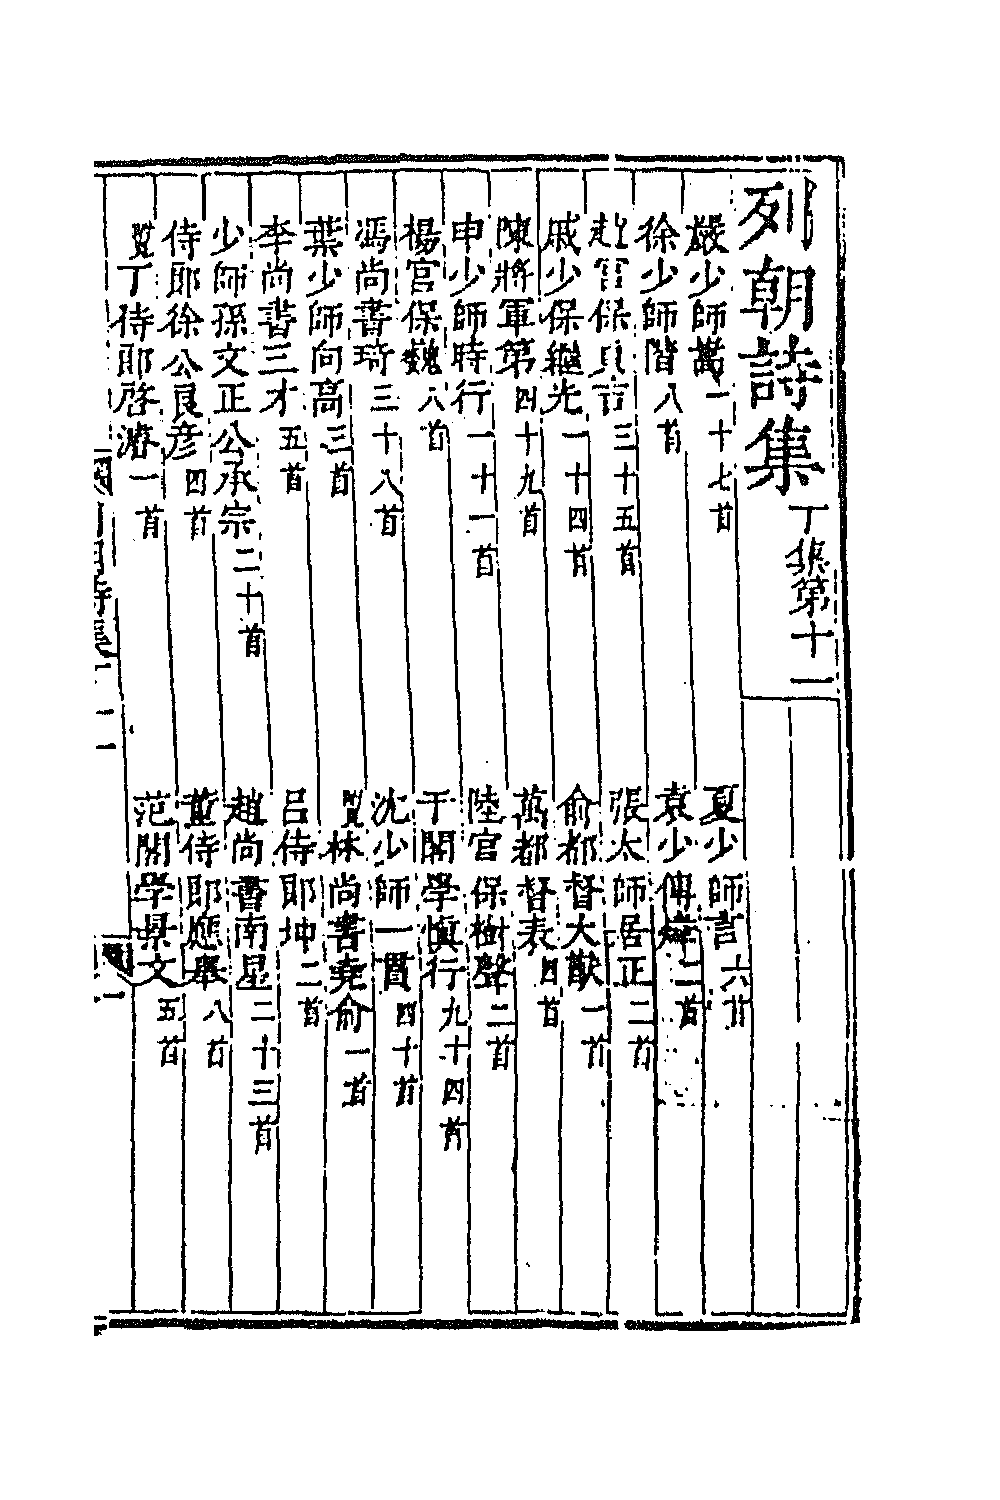 列朝詩集丁集第十一
嚴少師嵩一十七首　夏少師言六首
徐少師階八首　袁少傅煒二首
趙宮保貞吉三十五首　張太師居正二首
戚少保繼光一十四首　俞都督大猷一首
陳將軍第四十九首　萬都督表四首
申少師時行一十一首　陸宮保樹聲二首
楊宮保巍六首　于閣學慎行九十四首
馮尚書琦三十八首　沈少師一貫四十首
葉少師向高三首　林尚書堯俞一首
李尚書三才五首　呂侍郎坤二首
少師孫文正公承宗二十首　趙尚書南星二十三首
侍郎徐公良彦四首　董侍郎應舉八首
丁侍郎啓濬一首　范閣學景文五首